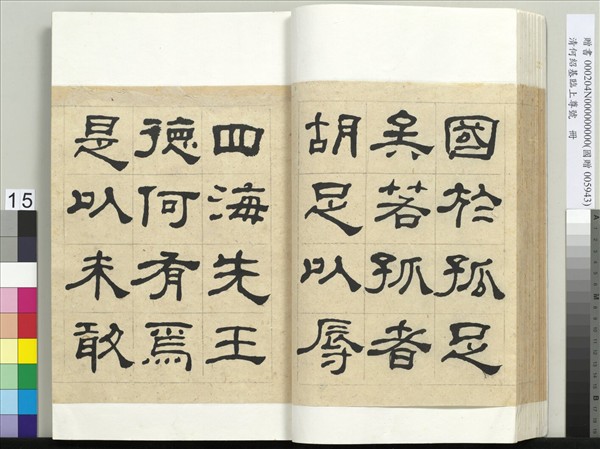 國於孤足
矣若孤者
胡足以辱
四海先王
德何有焉
是以未敢
贈書 000204N000000000(國贈 005943)
清何紹基臨上尊號 冊
15